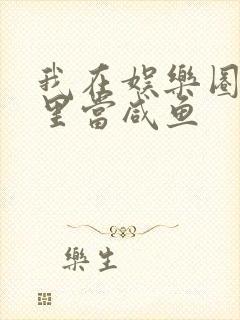 我在娱樂圈
里當咸鱼
樂生